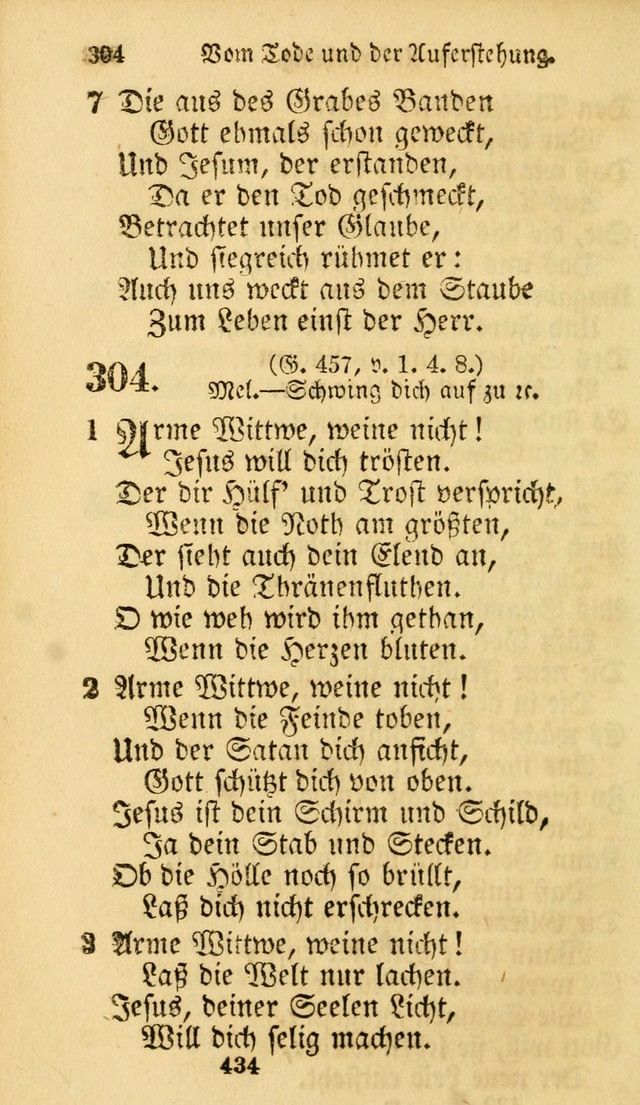 304 Vom Tode und der Auferstehung.
7 Die aus des Grabes Banden
Gott ehmals schon geweckt,
Und Jesum, der erstanden,
Da er den Tod geschmeckt,
Betrachtet unser Glaube,
Und siegreich rühmet er:
Auch uns weckt aus dem Staube
Zum Leben einst der Herr.
304. (G. 457, v. 1. 4. 8.)
Mel.—Schwing dich auf zu ꝛc.
1 Arme Wittwe, weine nicht!
Jesus will dich trösten.
Der dir Hülf' und Trost verspricht,
Wenn die Noth am größten,
Der sieht auch dein Elend an,
Und die Thränenfluthen.
O wie weh wird ihm gethan,
Wenn die Herzen bluten.
2 Arme Wittwe, weine nicht!
Wenn die Feinde toben,
Und der Satan dich anficht,
Gott schützt dich von oben.
Jesus ist dein Schirm und Schild,
Ja dein Stab und Stecken.
Ob die Hölle noch so brüllt,
Laß dich nicht erschrecken.
3 Arme Wittwe, weine nicht!
Laß die Welt nur lachen.
Jesus, deiner Seelen Licht,
Will dich selig machen.
434